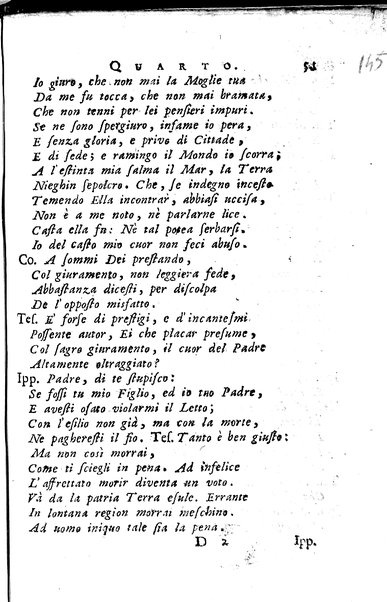 QUARTO. 51
145
Io giuro, che non mai la Moglie tua
Da me fu tocca, che non mai bramata,
Che non tenni per lei pensieri impuri.
Se ne sono spergiuro, infame io pera,
E senza gloria, e privo di Cittade,
E di sede; e ramingo il Mondo io scorra;
A l'estinta mia salma il Mar, la Terra
Nieghin sepolcro. Che, se indegno incesto
Temendo Ella incontrar, abbiasi uccisa,
Non è a me noto, nè parlarne lice.
Casta ella fu: Nè tal potea serbarsi.
Io del casto mio cuor non feci abuso.
Co. A sommi Dei prestando,
Col giuramento, non leggiera fede,
Abbastanza dicesti, per discolpa
De l'opposto misfatto.
Tes. E' forse di prestigi, e d'incantesmi
Possente autor, Ei che placar presume,
Col sagro giuramento, il cuor del Padre
Altamente oltraggiato?
Ipp. Padre, di te stupisco:
Se fossi tu mio Figlio, ed io tuo Padre,
E avesti osato violarmi il Letto;
Con l'esilio non già, ma con la morte,
Ne pagheresti il fio. Tes. Tanto è ben giusto:
Ma non così morrai,
Come ti sciegli in pena. Ad infelice
L'affrettato morir diventa un voto.
Và da la patria Terra esule. Errante
In lontana region morrai meschino.
Ad uomo iniquo tale sia la pena.
D 2 Ipp.